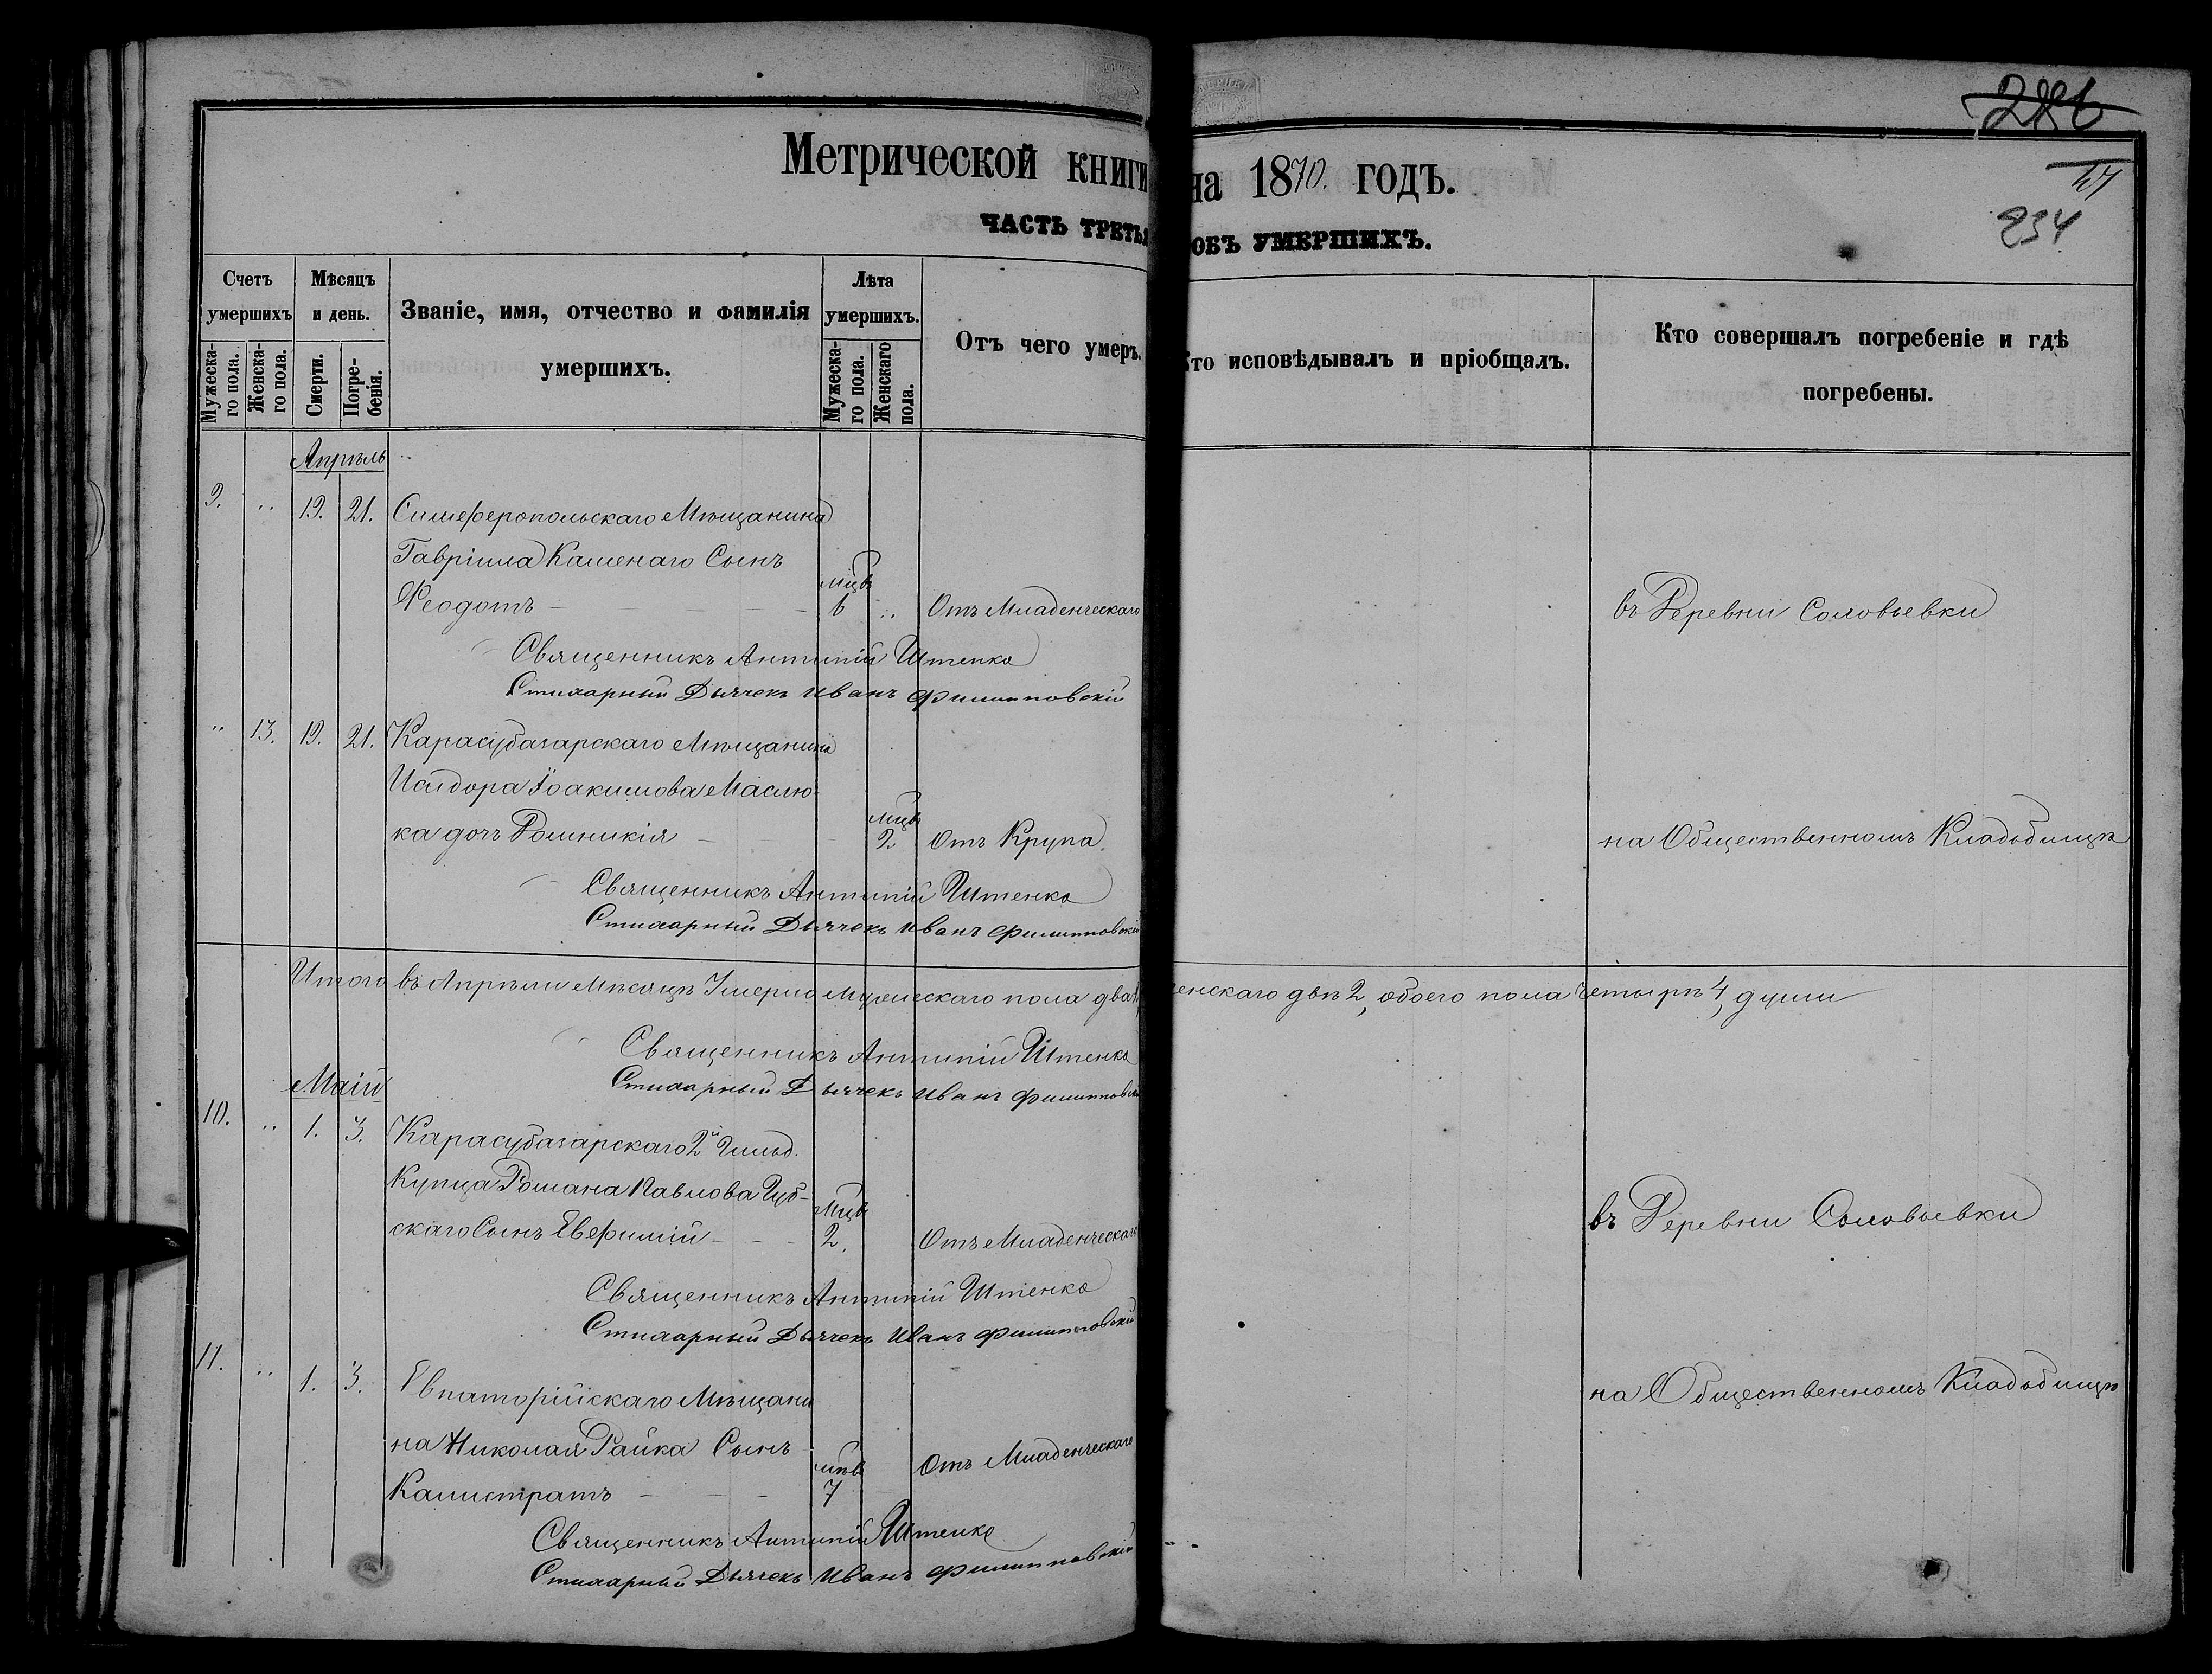 286
Метрической книги на 1870. годъ.
47
234
ЧАСТЬ ТРЕТЬЯ ОБЪ УМЕРШИХЪ.
Счетъ умершихъ
Мужеска-го пола.
Женска-го пола.
Мѣсяцъ и день.
Смерти.
Погре-бенія.
Званіе, имя, отчество и фамилія
умершихъ.
Лѣта умершихъ.
Мужеска-го пола.
Женскаго пола.
Отъ чего умеръ.
Кто исповѣдывалъ и пріобщалъ.
Кто совершалъ погребеніе и гдѣ
погребены.
Апрѣль
9. " 19. 21. Симферопольскаго Мѣщанина
Гавріила Каменаго Сынъ
Феодотъ мцвъ 6 " Отъ Младенческаго въ Деревни Соловьевки
Священникъ Антипій Штепко
Стихарный Дьячекъ Иванъ Филипповскій
" 13. 19. 21. Карасубазарскаго Мѣщанина
Исидора Іоакимова Маслю-
ка дочъ Домникія мцвъ 2 Отъ Крупа на Общественномъ Кладбищѣ
Священникъ Антипій Штепко
Стихарный Дьячекъ Иванъ Филипповскій
Итого въ Апрѣли Мѣсяцѣ Умерло мужескаго пола два женскаго двѣ 2, обоего пола четырѣ 4, души
Священникъ Антипій Штепко
Стихарный Дьячекъ Иванъ Филипповскій
Маій
10. " 1. 3. Карасубазарскаго 2й Гильд.
Купца Романа Павлова Губ-
скаго Сынъ Евфимій Мцвъ 2. Отъ Младенческаго въ Деревни Соловьевки
Священникъ Антипій Штепко
Стихарный Дьячекъ Иванъ Филипповскій
11. " 1. 3. Евпаторійскаго Мѣщани
на Николая Райка Сынъ
Калистратъ 7 Отъ Младенческаго на Общественномъ Кладбищѣ
Священникъ Антипій Штепко
Стихарный Дьячекъ Иванъ Филипповскій